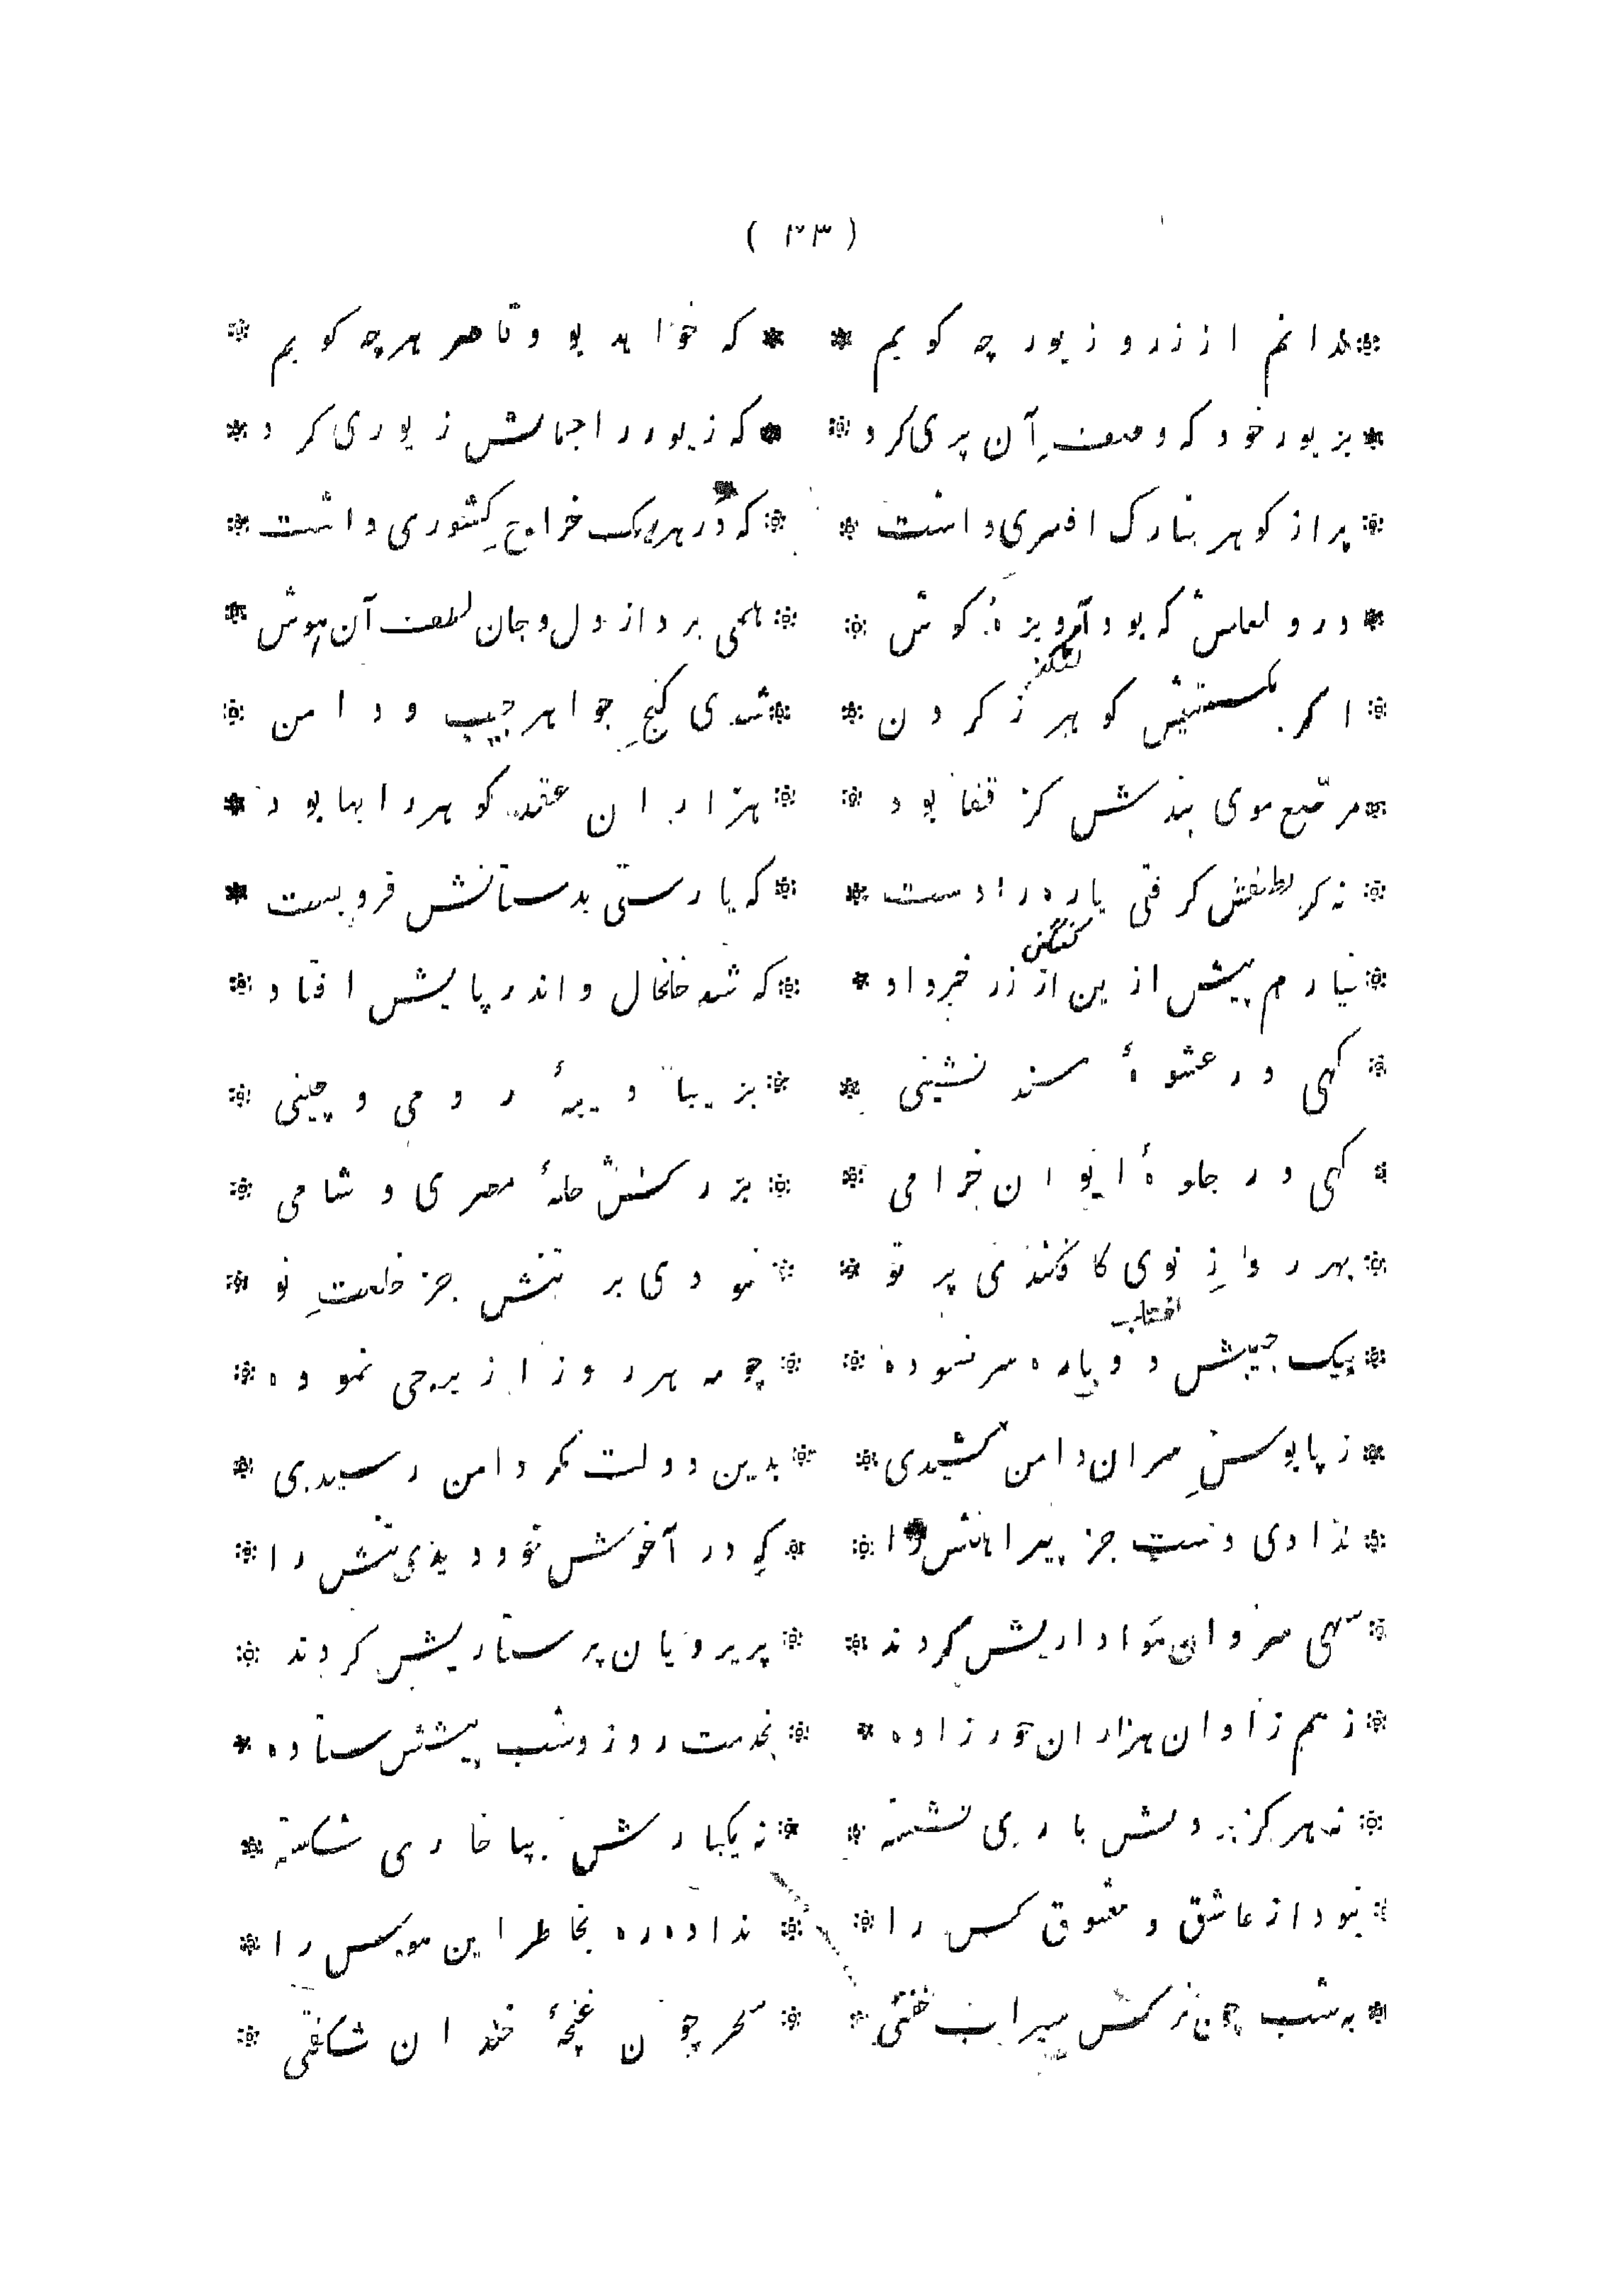 ( ۲۳ )
* ندانم از زر و زیور چه کویم * * که خواهد بود قاصر هرچه کویم *
* بزیور خود که وصفِ آن پری کرد * * که زیور را جمالش زیوری کرد *
* پر از کوهر بتارک افسری داشت * * که دُر هریک خراجِ کشوری داشت *
* در و لعلش که بود آویزهٔ کوش * * همی برد از دل و جان لطف آن هوش *
* اکر بکسستیش کوهر ز کردن * * شدی کنجِ جواهر جیب و دامن *
* مرصّع موی بندش کز قفا بود * * هزاران عقد کوهر را بها بود *
* نه کر لطفش کرفتی یاره را دست * * که یارستی بدستانش فروبست *
کنگن
* نیارم بیش ازین از زر خبر داد * * که شد خلخال و اندر پایش افتاد *
* کهی در عشوهٔ مسند نشینی * * بزیبا دیبهٔ رومی و چینی *
* کهی در جلوهٔ ایوان خرامی * * بزرکش حلهٔ مصری و شامی *
* بهر روزِ نوی کافکندی پرتو * * نبودی بر تنش جز خلعتِ نو *
آفتاب
* بیک جیبش دو باره سر نسوده * * چو مه هر روز از برجی نموده *
* ز پابوسِ سران دامن کشیدی * * بدین دولت مکر دامن رسیدی *
* ندادی دست جز پیراهنش را * * که در آغوش خود دیدی تنش را *
* سهی سروان هواداریش کردند * * پریرویان پرستاریش کردند *
* ز هم زادان هزاران حور زاده * * بخدمت روز و شب پیشش ستاده *
* نه هرکز بر دلش باری نشسته * * نه یکبارش بپا خاری شکسته *
* نبود از عاشق و معشوق کس را * * نداده ره بخاطر این هوس را *
* به شب چون نرکس سیراب خفتی * * سحر چون غنچهٔ خندان شکفتی *